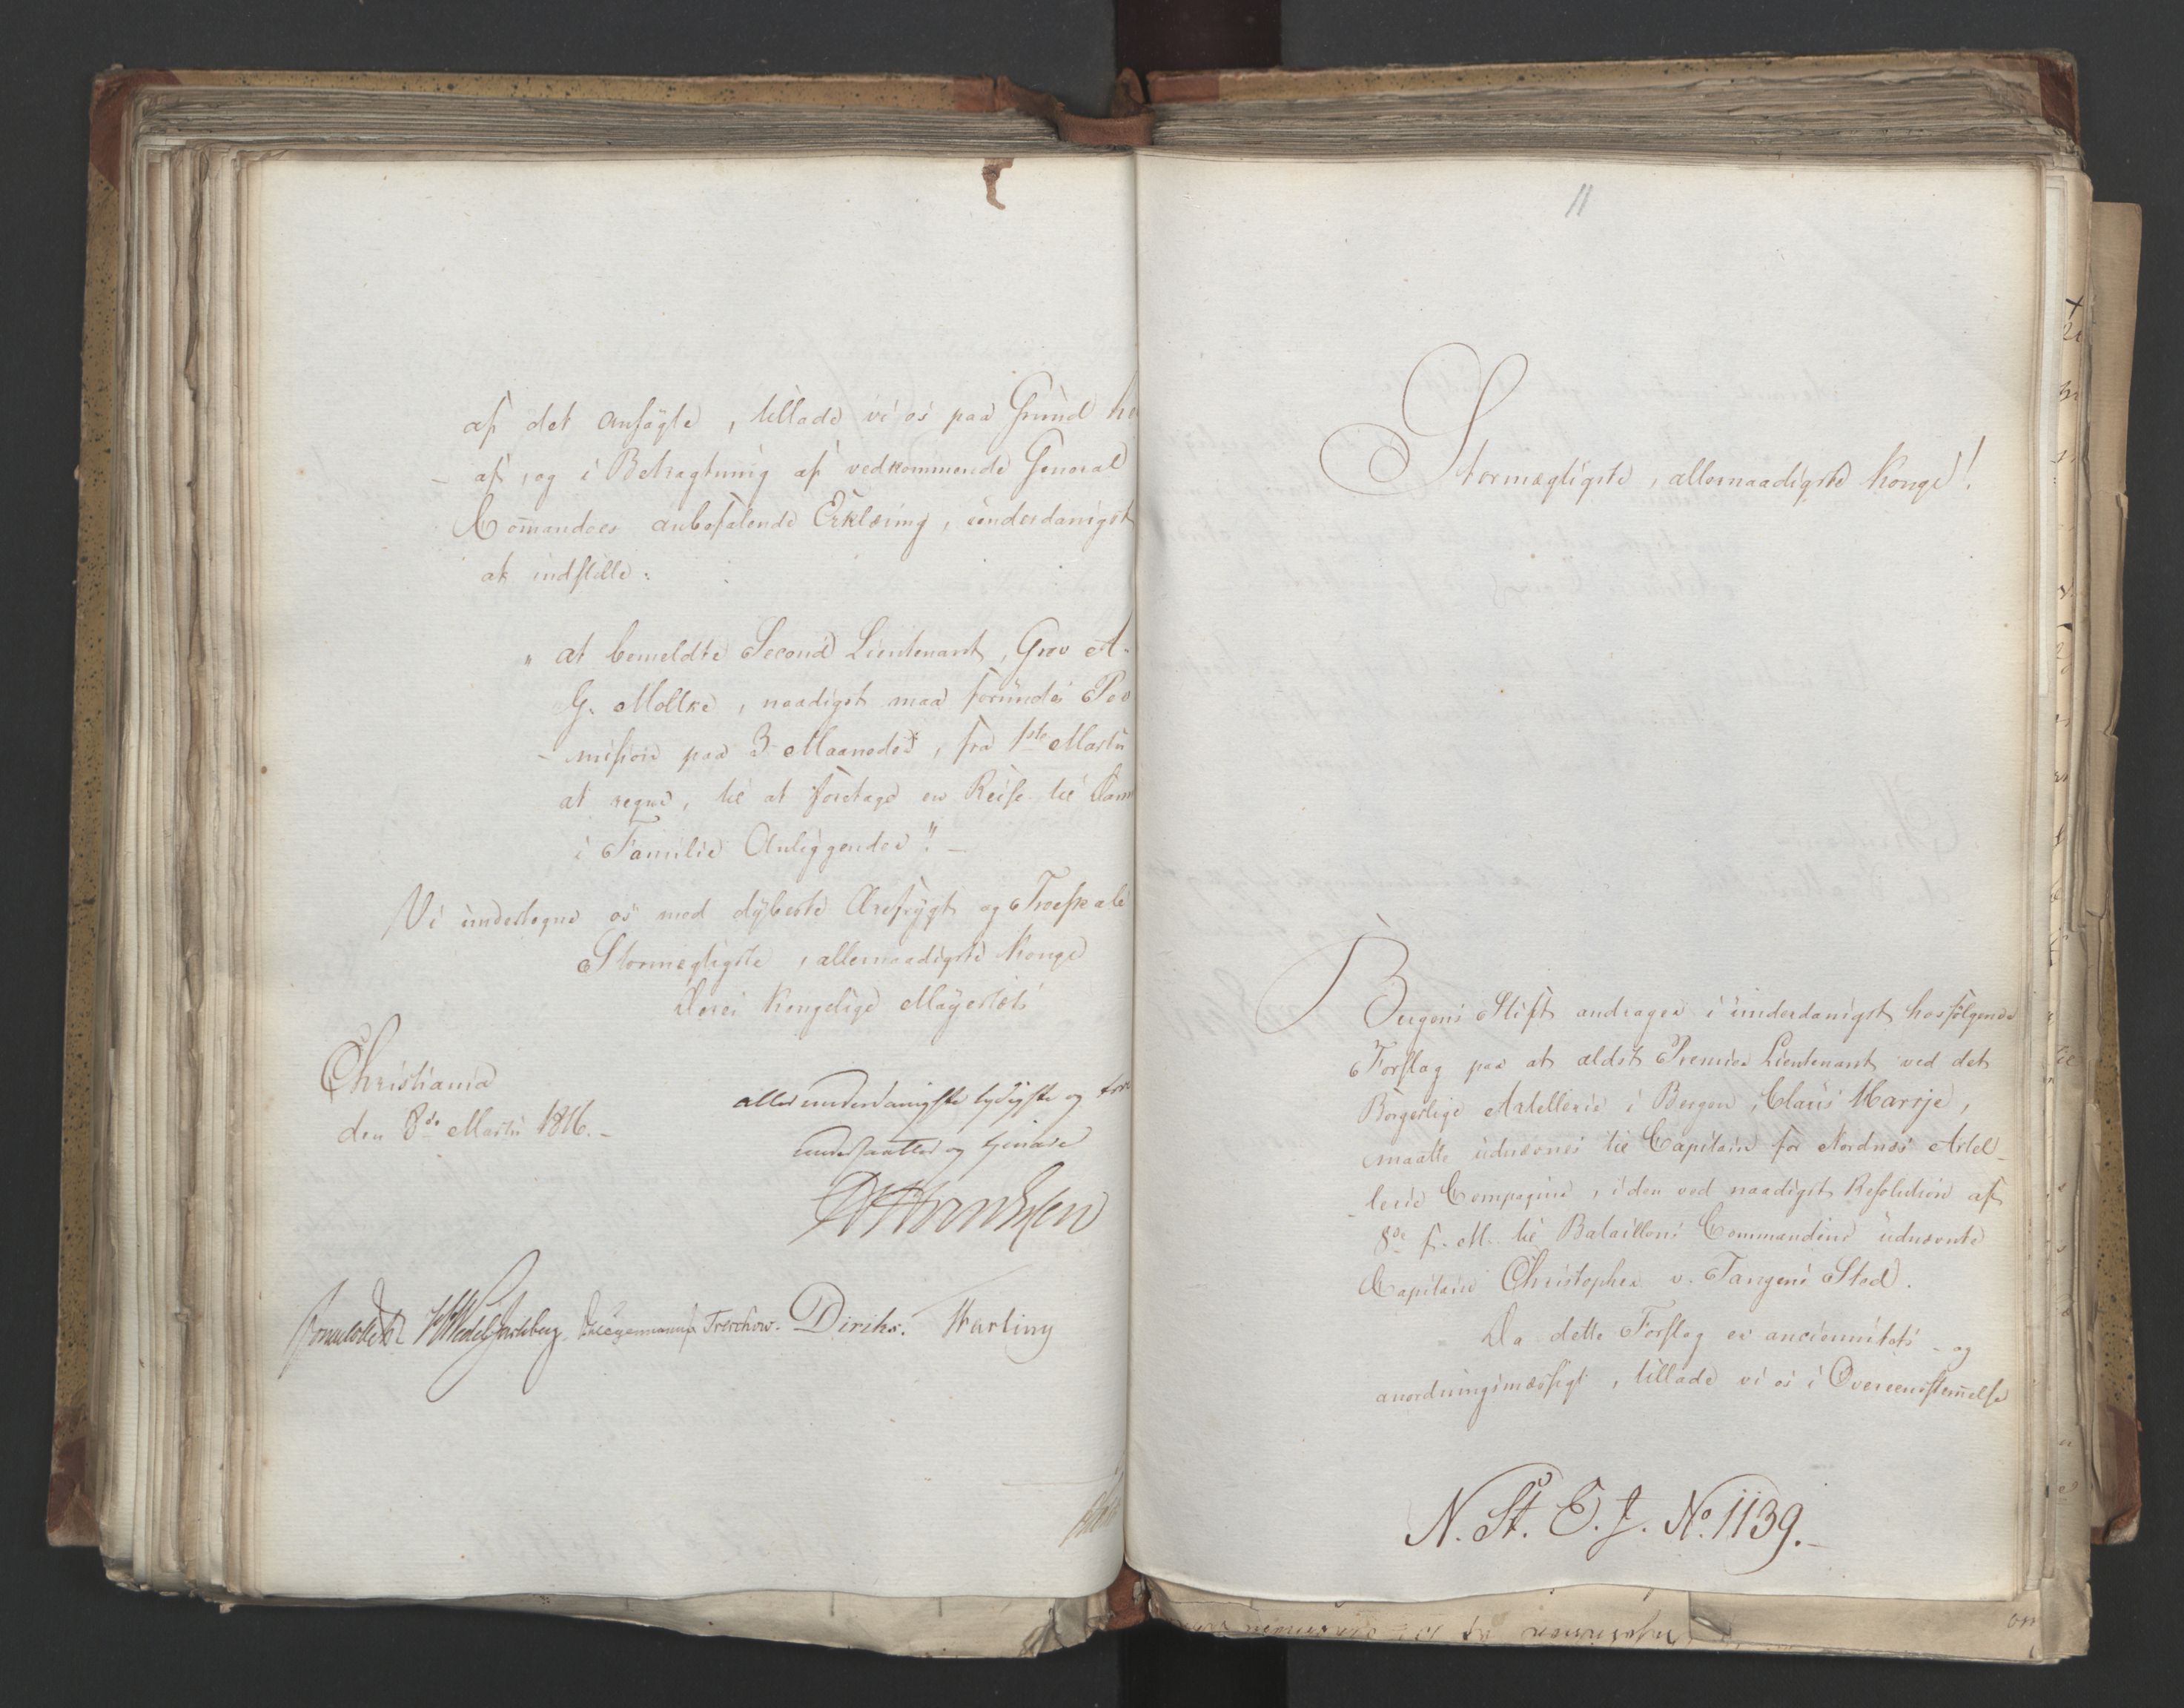 af det ansøgte, tillade vi os paa Grund he
- af, og i Betragtning af vedkommende General
Com̄andoes anbefalende Erklæring, underdanigst
at indstille:
" at bemeldte Second Lieutenant, Grev A.
G. Moltke, naadigst maa forundes Per
- mission paa 3 Maaneder, fra 1ste Martii
at regne, til at foretage en Reise til Dan
i Familie Anliggender". -
Vi undertegne os med dybeste Ærefrygt og Troeskab
Stormægtigste, allernaadigste Konge
Deres Kongelige Mayestæts
Christiania
den 8de Martii 1816. -
allerunderdanigste lydigste og tro
undersaatter og tjenere
Sommerhielm Wedel Jarlsberg. Treschow. Diriks. Hartung
11
Stormægtigste, allernaadigste Konge!
Bergens Stift andrager i underdanigst hosfølgende
Forslag paa at ældst Premier Lieutenant ved det
Borgerlige Artellerie i Bergen, Claus Harrje,
maatte udnævnes til Capitain for Nordnæs Artel-
- lerie Compagnie, i den ved naadigst Resolution af
8de f. M. til Bataillons Commandeur udnævnte
Capitain Christopher v. Tangens Sted.
Da dette Forslag er anciennitets - og
anordningsmæssigt, tillade vi os i Overeensstem̄else
N. St. E. J. No. 1139. -